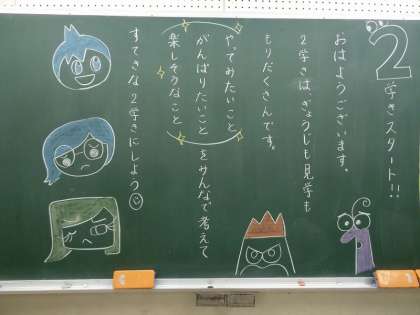 2学きスタート!!
おはようございます。
2学きは、ぎょうじも見学も
もりだくさんです。
やってみたいこと
がんばりたいこと
楽しそうなこと
をみんなで考えて
すてきな2学きにしよう